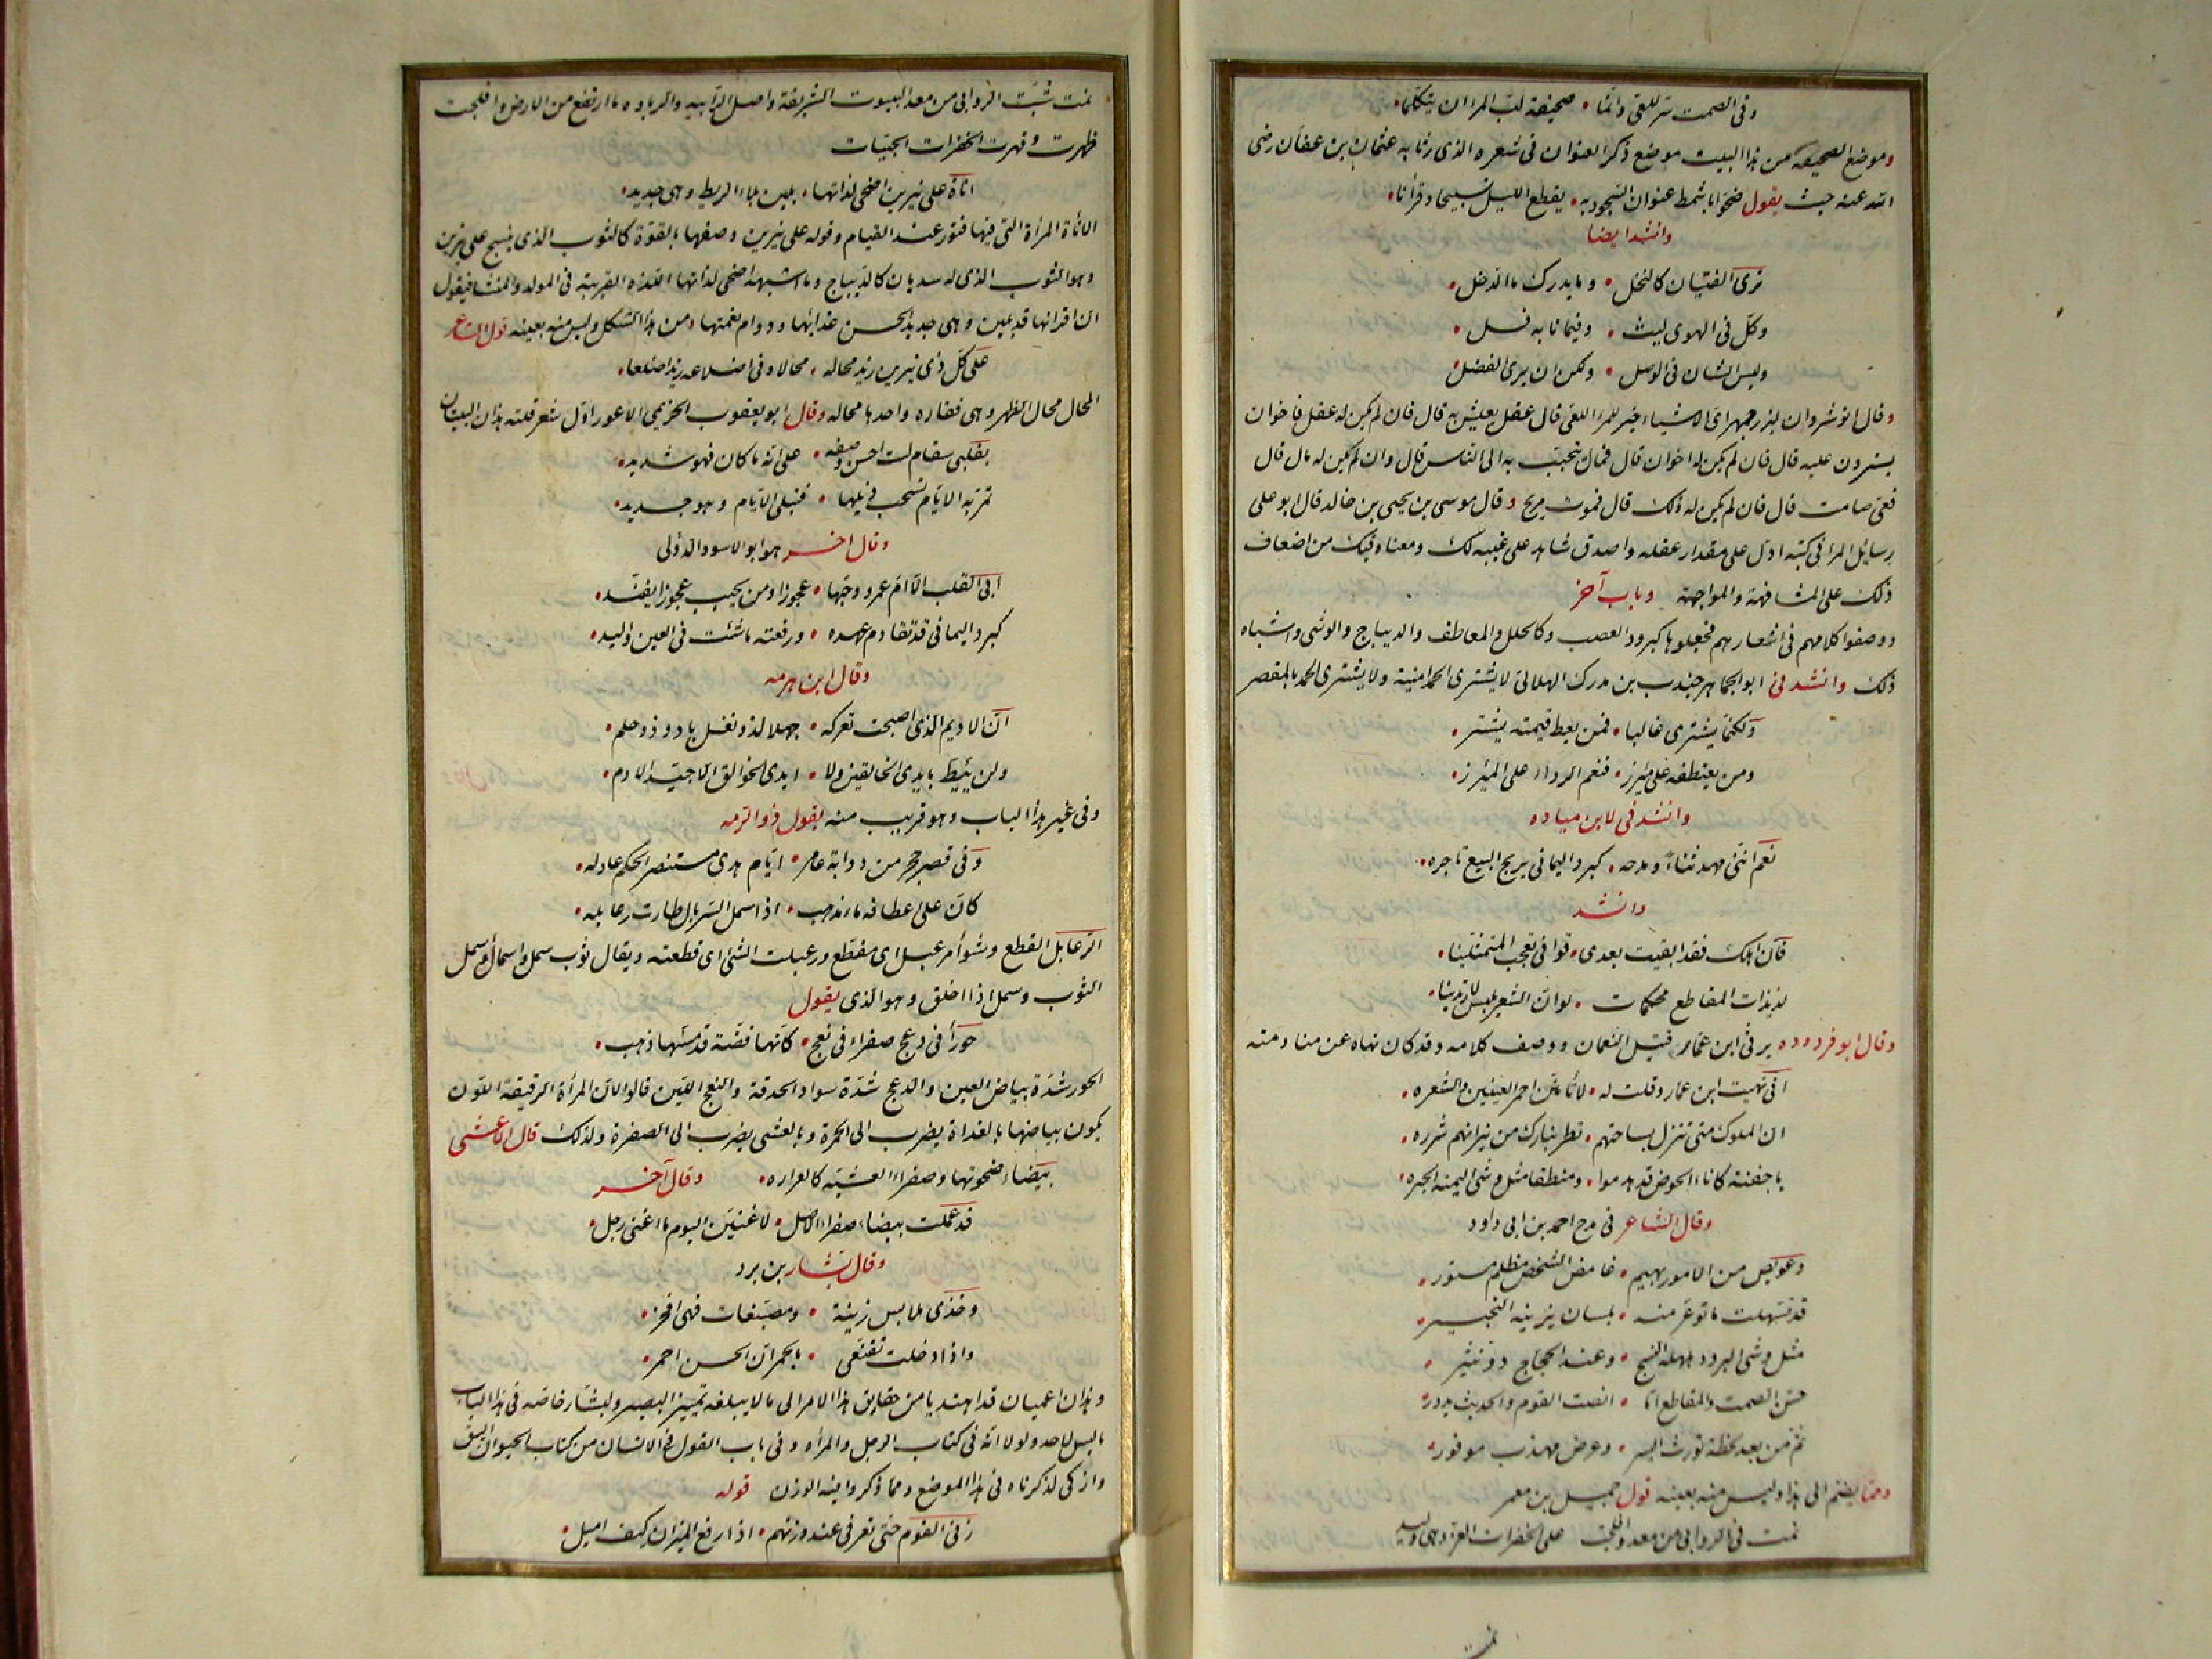 وفى الصمت ستر للغبى وانما • صحيفة لب المرء ان يتكلما •
وموضع الصحيفة من هذا البيت موضع ذكر العنوان فى شعره الذى رثا به عثمان بن عفان رضى
الله عنه حيث يقول ضحوا باشمط عنوان السجود به • يقطع الليل تسبيحا وقرأنا •
وانشد ايضا
ترى الفتيان كالنخل • وما يدرك ما الدخل •
وكل فى الهوى ليث • وفيما نابه فسل •
وليس الشان فى الوصل • ولكن ان يرى الفضل •
وقال انوشروان لبزرجمهر اى الاشياء خير للمرء العى قال عقل يعيش به قال فان لم يكن له عقل فاخوان
يسترون عليه قال فان لم يكن له اخوان قال فمال يتحبب به الى الناس قال وان لم يكن له مال قال
فعى صامت قال فان لم يكن له ذلك قال فموت مريح وقال موسى بن يحيى بن خالد قال ابو على
رسائل المرء فى كتبه ادل على مقدار عقله واصدق شاهد على غيبه لك ومعناه فيك من اضعاف
ذلك على المشافهة والمواجهة وباب آخر
ووصفوا كلامهم فى اشعارهم فجعلوها كبرود العصب وكالحلل والمعاطف والديباج والوشى واشباه
ذلك وانشدنى ابو الجماهر جندب بن مدرك الهلالى لا يشترى الحمد امنية ولا يشترى الحمد بالمقصر
ولكنما يشترى غاليا • فمن يعط قيمته يشتر •
ومن يعتطفه على مئزر • فنعم الرداء على المئزر •
وانشدنى لابن مياده
نعم اننى مهد ثناء ومدحه • كبرد اليمانى يربح البيع تاجره •
وانشد
فان اهلك فقد ابقيت بعدى • قوافى تعجب المتمثلينا •
لذيذات المقاطع محكمات • لو ان الشعر يلبس لارتدينا •
وقال ابو قردوده يرثى ابن عمار قتيل النعمان ووصف كلامه وقد كان نهاه عن منادمته
انى نهيت ابن عمار وقلت له • لا تأمنن احمر العينين والشعره •
ان الملوك متى تنزل بساحتهم • تطر بنارك من نيرانهم شرره •
يا جفنة كاناء الحوض قد هدموا • ومنطقا مثل وشى اليمنه الحبره •
وقال الشاعر فى مدح احمد بن ابى داود
وعويص من الامور بهيم • غامض الشخص مظلم مستور •
قد تسهلت ما توعر منه • بلسان يزينه التحبير •
مثل وشى البرود هلهله النسج • وعند الحجاج در نثير •
حسن الصمت والمقاطع اما • انصت القوم والحديث يدور •
ثم من بعد لحظة تورث اليسر • وعرض مهذب موفور •
ومما يضم الى هذا وليس منه بعينه قول جميل بن معمر
نمت فى الروابى من معد وافلجت على الخفرات الغر وهى وليد
نمت
نمت شبت الروابى من معد البيوت الشريفة واصل الرابيه والرباوه ما ارتفع من الارض وافلجت
ظهرت وقهرت الخفرات الحييات
اناة على نيرين اضحى لداتها • بلين بلاء الريط وهى جديد •
الاناة المرأة التى فيها فتور عند القيام وقوله على نيرين وصفها بالقوة كالثوب الذى ينسج على نيرين
وهو الثوب الذى له سديان كالديباج وما اشبهه اضحى لداتها اللدة القريبة فى المولد والمنشا فيقول
ان اقرانها قد بلين وهى جديد لحسن غذائها ودوام نعمتها ومن هذا الشكل وليس منه بعينه قول الشاعر
على كل ذى نيرين زيد محاله • محالا وفى اضلاعه زيد اضلعا •
المحال محال الظهر وهى فقاره واحدها محاله وقال ابو يعقوب الخزيمى الاعور اول شعر قلته هذان البيتان
بقلبى سقام لست احسن وصفه • على انه ما كان فهو شديد •
تمر به الايام تسحب ذيلها • فتبلى الايام وهو جديد •
وقال اخر هو ابو الاسود الدؤلى
ابى القلب الا ام عمرو وحبها • عجوزا ومن يحبب عجوزا يفند •
كبرد اليمانى قد تقادم عهده • ورقعته ما شئت فى العين واليد •
وقال ابن هرمه
ان الاديم الذى اصبحت تعركه • جهلا لذو نغل باد وذو حلم •
ولن يئيط بايدى الخالقين ولا • ايدى الخوالق الا جيد الادم •
وفى غير هذا الباب وهو قريب منه يقول ذو الرمه
وفى قصر حجر من دوابة عامر • ايام هدى مستنصر الحكم عادله •
كان على اعطافه ماء مذهب • اذا سمل السربال طارت رعابله •
الرعابل القطع وشواء مرعبل اى مقطع ورعبلت الشئ اى قطعته ويقال ثوب سمل واسمال واسمل
الثوب وسمل اذا اخلق وهو الذى يقول
حوراء فى دعج صفراء فى نعج • كانها فضة قد مسها ذهب •
الحور شدة بياض العين والدعج شدة سواد الحدقة والنعج اللين قالوا لان المرأة الرقيقة اللون
يكون بياضها بالغداة يضرب الى الحمرة وبالعشى يضرب الى الصفرة ولذلك قال الاعشى
بيضاء ضحوتها وصفراء العشيه كالعراره • وقال آخر
قد علمت بيضاء صفراء الاصل • لاغنين اليوم ما اغنى رجل •
وقال بشار بن برد
وخذى ملابس زينة • ومصبغات فهى افخر •
واذا دخلت تقنعى • بالحمر ان الحسن احمر •
وهذان اعميان قد اهتديا من حقايق هذا الامر الى ما لا يبلغه تمييز البصير ولبشار خاصه فى هذا الباب
ما ليس لاحد ولولا انه فى كتاب الرجل والمرأه وفى باب القول فى الانسان من كتاب الحيوان اليق
وازكى لذكرناه فى هذا الموضع ومما ذكروا فيه الوزن قوله
زنى القوم حتى تعرفى عند وزنهم • اذا رفع الميزان كيف اميل •